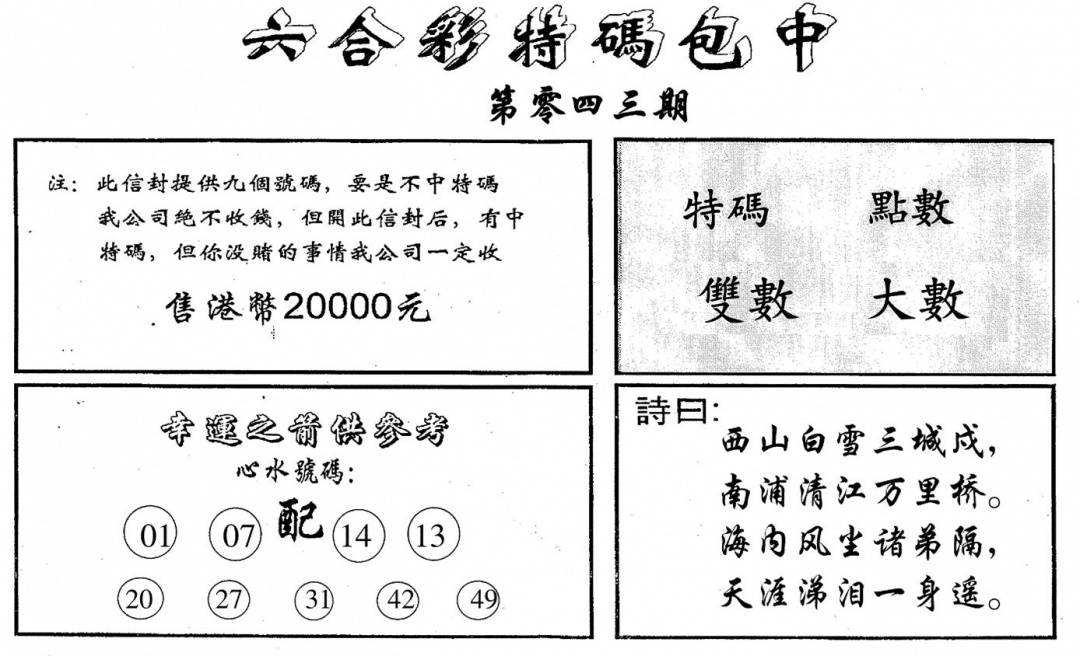 六合彩特碼包中
第零四三期
注：此信封提供九個號碼，要是不中特碼
我公司絕不收錢，但開此信封后，有中
特碼，但你没賭的事情我公司一定收
售港幣20000元
特碼 點數
雙數 大數
幸運之箭供參考
心水號碼：
01 07 配 14 13
20 27 31 42 49
詩曰：
西山白雪三城戍，
南浦清江万里桥。
海内风尘诸弟隔，
天涯涕泪一身遥。